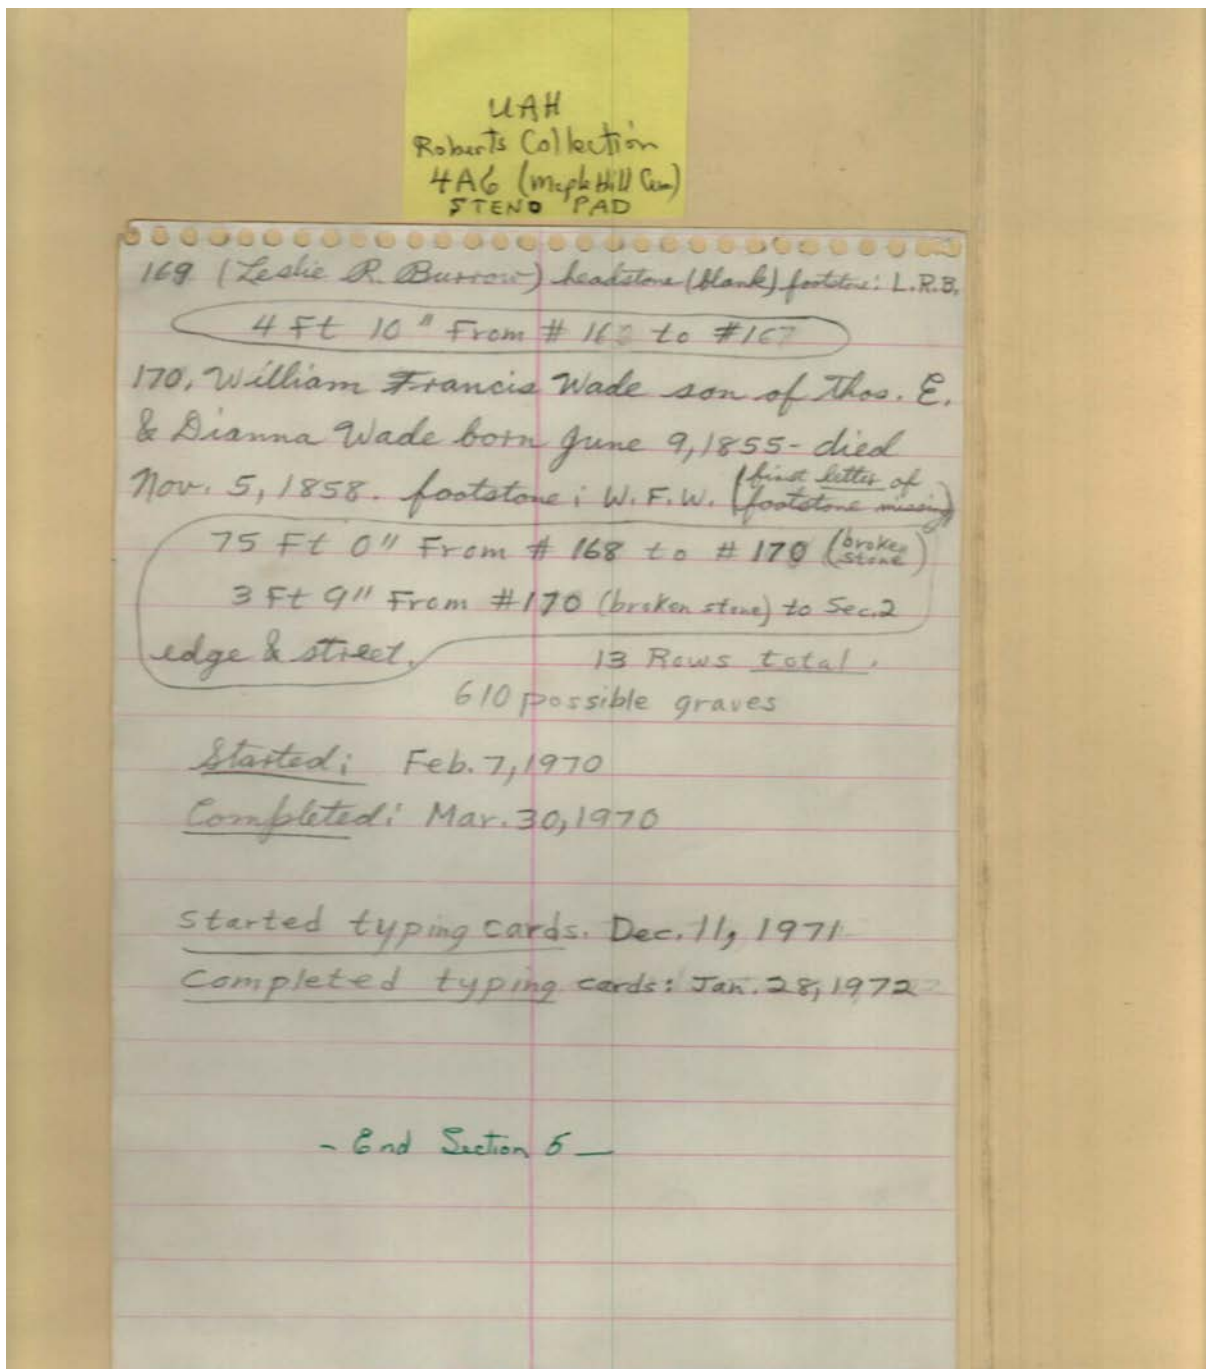 UAH
Roberts Collection
4A6 (Maple Hill Cem)
STENO PAD
169 (Leslie R. Burrow) headstone (blank) footstone: L.R.B.
4 Ft 10" From # to #167
170. William Francis Wade son of Thos. E.
& Dianna Wade born June 9, 1855 - died
Nov. 5, 1858. footstone: W.F.W. (first letter of
footstone missing)
75 Ft 0" From # 168 to # 170 (broken
stone)
3 Ft 9" From #170 (broken stone) to Sec. 2
edge & street.
13 Rows total.
610 possible graves
Started: Feb. 7, 1970
Completed: Mar. 30, 1970
Started typing cards. Dec. 11, 1971
Completed typing cards: Jan. 28, 1972
- End Section 5 -